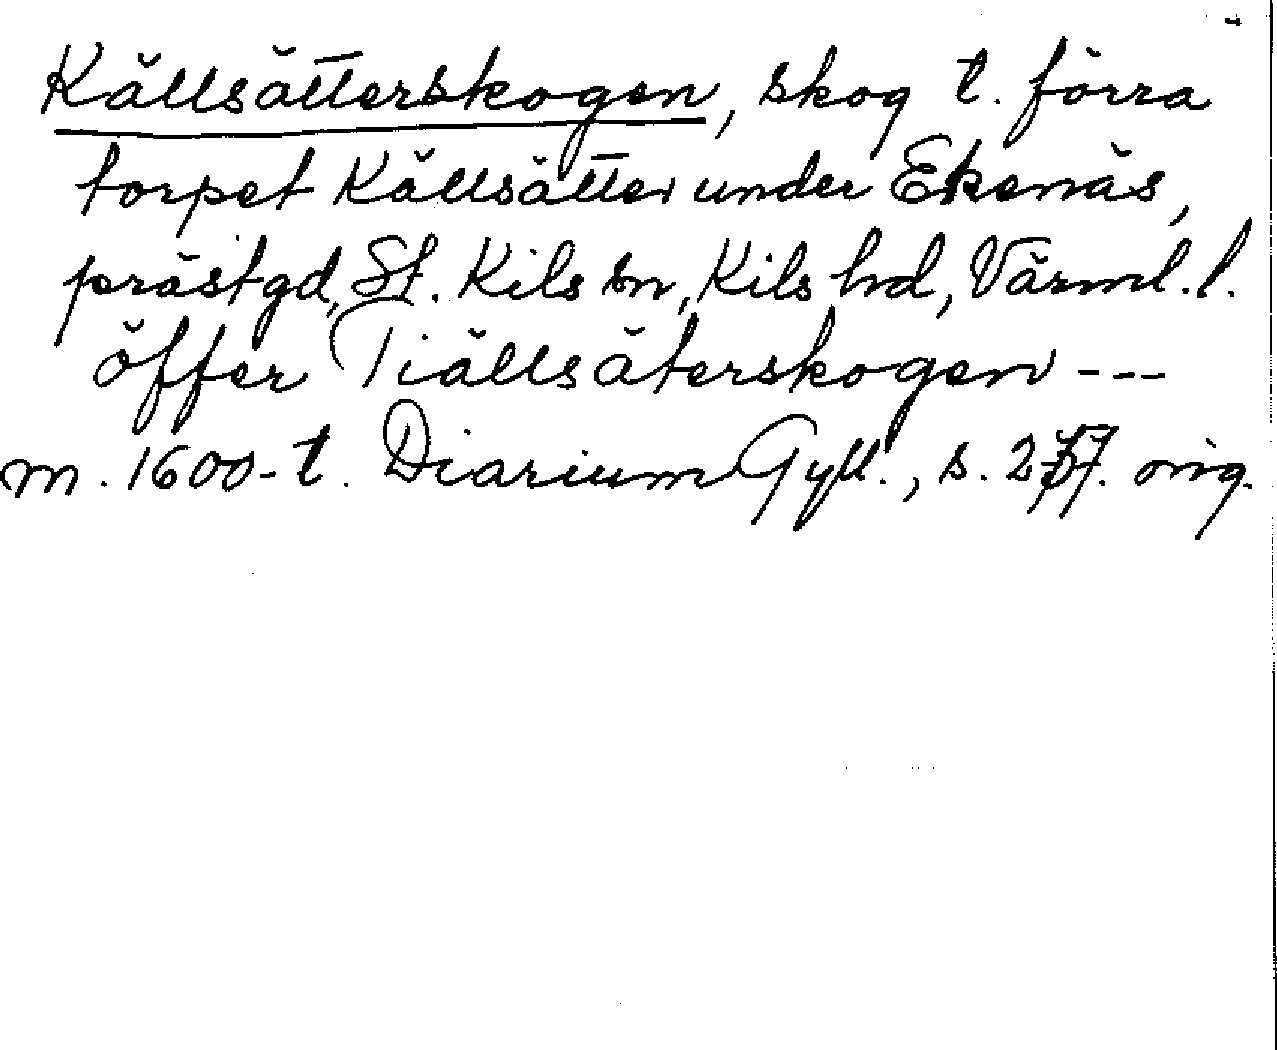 Källsätterskogen, skog t. förra
torpet Källsätter under Ekenäs,
prästgd, St. Kils sn, Kils hd, Värml. l.
öffer Tiällsäterskogen ---
m. 1600-t. Diarium Gyll., s. orig.